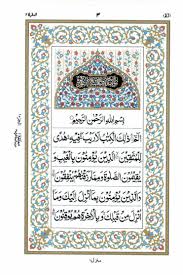 البقرة ٢
٣
الٓمّٓ ١
بِسْمِ اللهِ الرَّحْمٰنِ الرَّحِيْمِ
الٓمّٓ ۚ ذٰلِكَ الْكِتٰبُ لَا رَيْبَ ۛ فِيْهِ ۛ هُدًى
لِّلْمُتَّقِيْنَ ۙ الَّذِيْنَ يُؤْمِنُوْنَ بِالْغَيْبِ وَ
يُقِيْمُوْنَ الصَّلٰوةَ وَمِمَّا رَزَقْنٰهُمْ يُنْفِقُوْنَ ۙ
وَالَّذِيْنَ يُؤْمِنُوْنَ بِمَآ اُنْزِلَ اِلَيْكَ وَمَآ
اُنْزِلَ مِنْ قَبْلِكَ ۚ وَبِالْاٰخِرَةِ هُمْ يُوْقِنُوْنَ ۗ
منزل ١